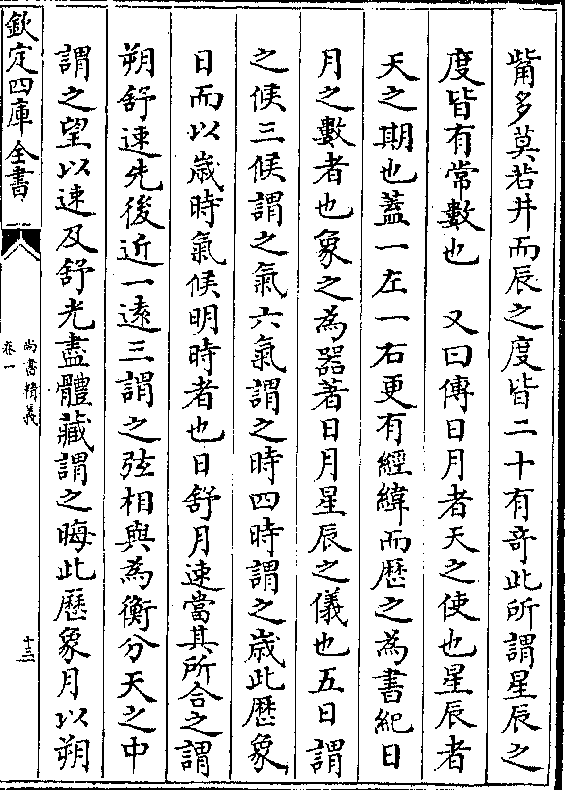 觜多莫若井而辰之度皆二十有竒此所謂星辰之
度皆有常數也　又曰傳日月者天之使也星辰者
天之期也蓋一左一右更有經緯而厯之為書紀日
月之數者也象之為器著日月星辰之儀也五日謂
之候三候謂之氣六氣謂之時四時謂之歲此厯象
日而以歲時氣候明時者也日舒月速當其所合之謂
朔舒速先後近一逺三謂之弦相與為衡分天之中
謂之望以速及舒光盡體藏謂之晦此厯象月以朔
欽定四庫全書
尚書精義
卷一
十三